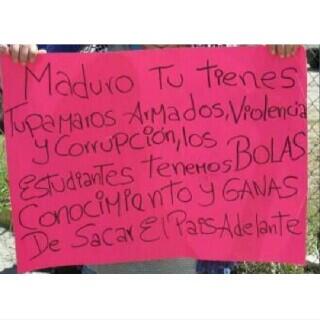 Maduro Tu tienes
Tupamaros Armados, Violencia
y Corrupción, los
Estudiantes tenemos BOLAS
Conocimiento y GANAS
De Sacar El Pais Adelante